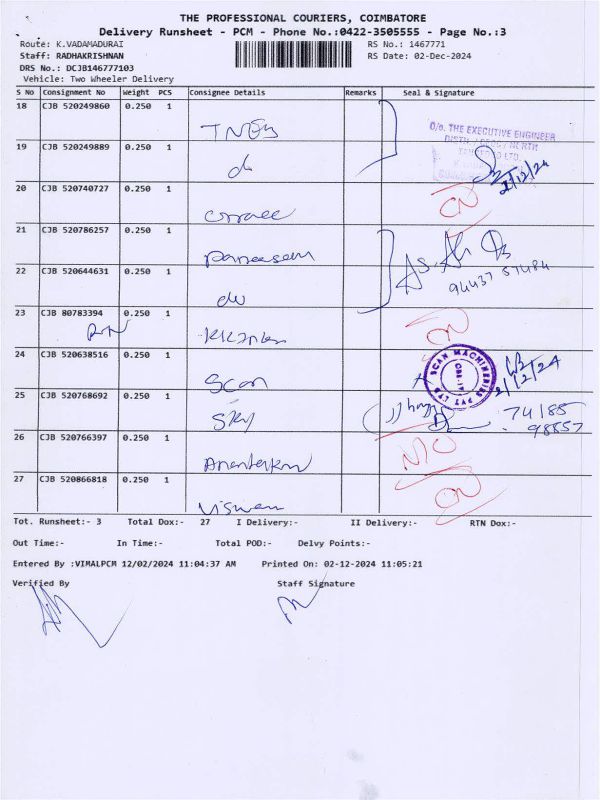 THE PROFESSIONAL COURIERS, COIMBATORE
Delivery Runsheet - PCM - Phone No.:0422-3505555 - Page No.:3
Route: K.VADAMADURAI
RS No.: 1467771
Staff: RADHAKRISHNAN
RS Date: 02-Dec-2024
DRS No.: DCJB146777103
Vehicle: Two Wheeler Delivery
S No Consignment No Weight PCS Consignee Details Remarks Seal & Signature
18 CJB 520249860 0.250 1
TNEB
O/o. THE EXECUTIVE ENGINEER
19 CJB 520249889 0.250 1
do
2/12/24
20 CJB 520740727 0.250 1
21 CJB 520786257 0.250 1
22 CJB 520644631 0.250 1
do
94437 57484
23 CJB 80783394 0.250 1
24 CJB 520638516 0.250 1
Scan
SCAN MACHINERIES PVT LTD
2/12/24
25 CJB 520768692 0.250 1
Sky
74185
98557
26 CJB 520766397 0.250 1
27 CJB 520866818 0.250 1
Tot. Runsheet:- 3 Total Dox:- 27 I Delivery:- II Delivery:- RTN Dox:-
Out Time:- In Time:- Total POD:- Delvy Points:-
Entered By :VIMALPCM 12/02/2024 11:04:37 AM Printed On: 02-12-2024 11:05:21
Verified By Staff Signature